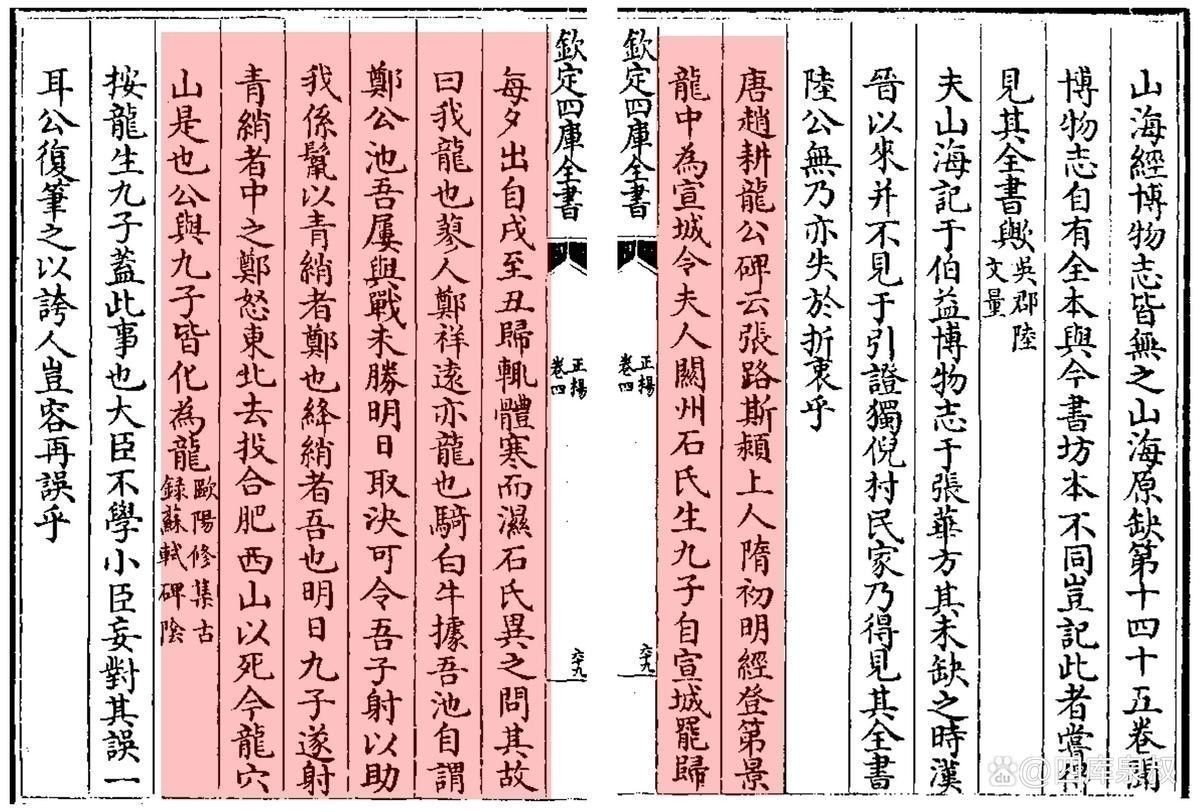 山海經博物志皆無之山海原缺第十四十五卷聞
博物志自有全本與今書坊本不同豈記此者嘗得
見其全書歟吳郡陸
文量
夫山海記于伯益博物志于張華方其未缺之時漢
晉以來并不見于引證獨倪村民家乃得見其全書
陸公無乃亦失於折衷乎
唐趙耕龍公碑云張路斯潁上人隋初明經登第景
龍中為宣城令夫人關州石氏生九子自宣城罷歸
欽定四庫全書
正楊
卷四
六十九
欽定四庫全書
正楊
卷四
六十九
每夕出自戌至丑歸輒體寒而濕石氏異之問其故
曰我龍也蓼人鄭祥遠亦龍也騎白牛據吾池自謂
鄭公池吾屢與戰未勝明日取決可令吾子射以助
我係鬛以青綃者鄭也絳綃者吾也明日九子遂射
青綃者中之鄭怒東北去投合肥西山以死今龍穴
山是也公與九子皆化為龍歐陽修集古
録蘇軾碑陰
按龍生九子蓋此事也大臣不學小臣妄對其誤一
耳公復筆之以誇人豈容再誤乎